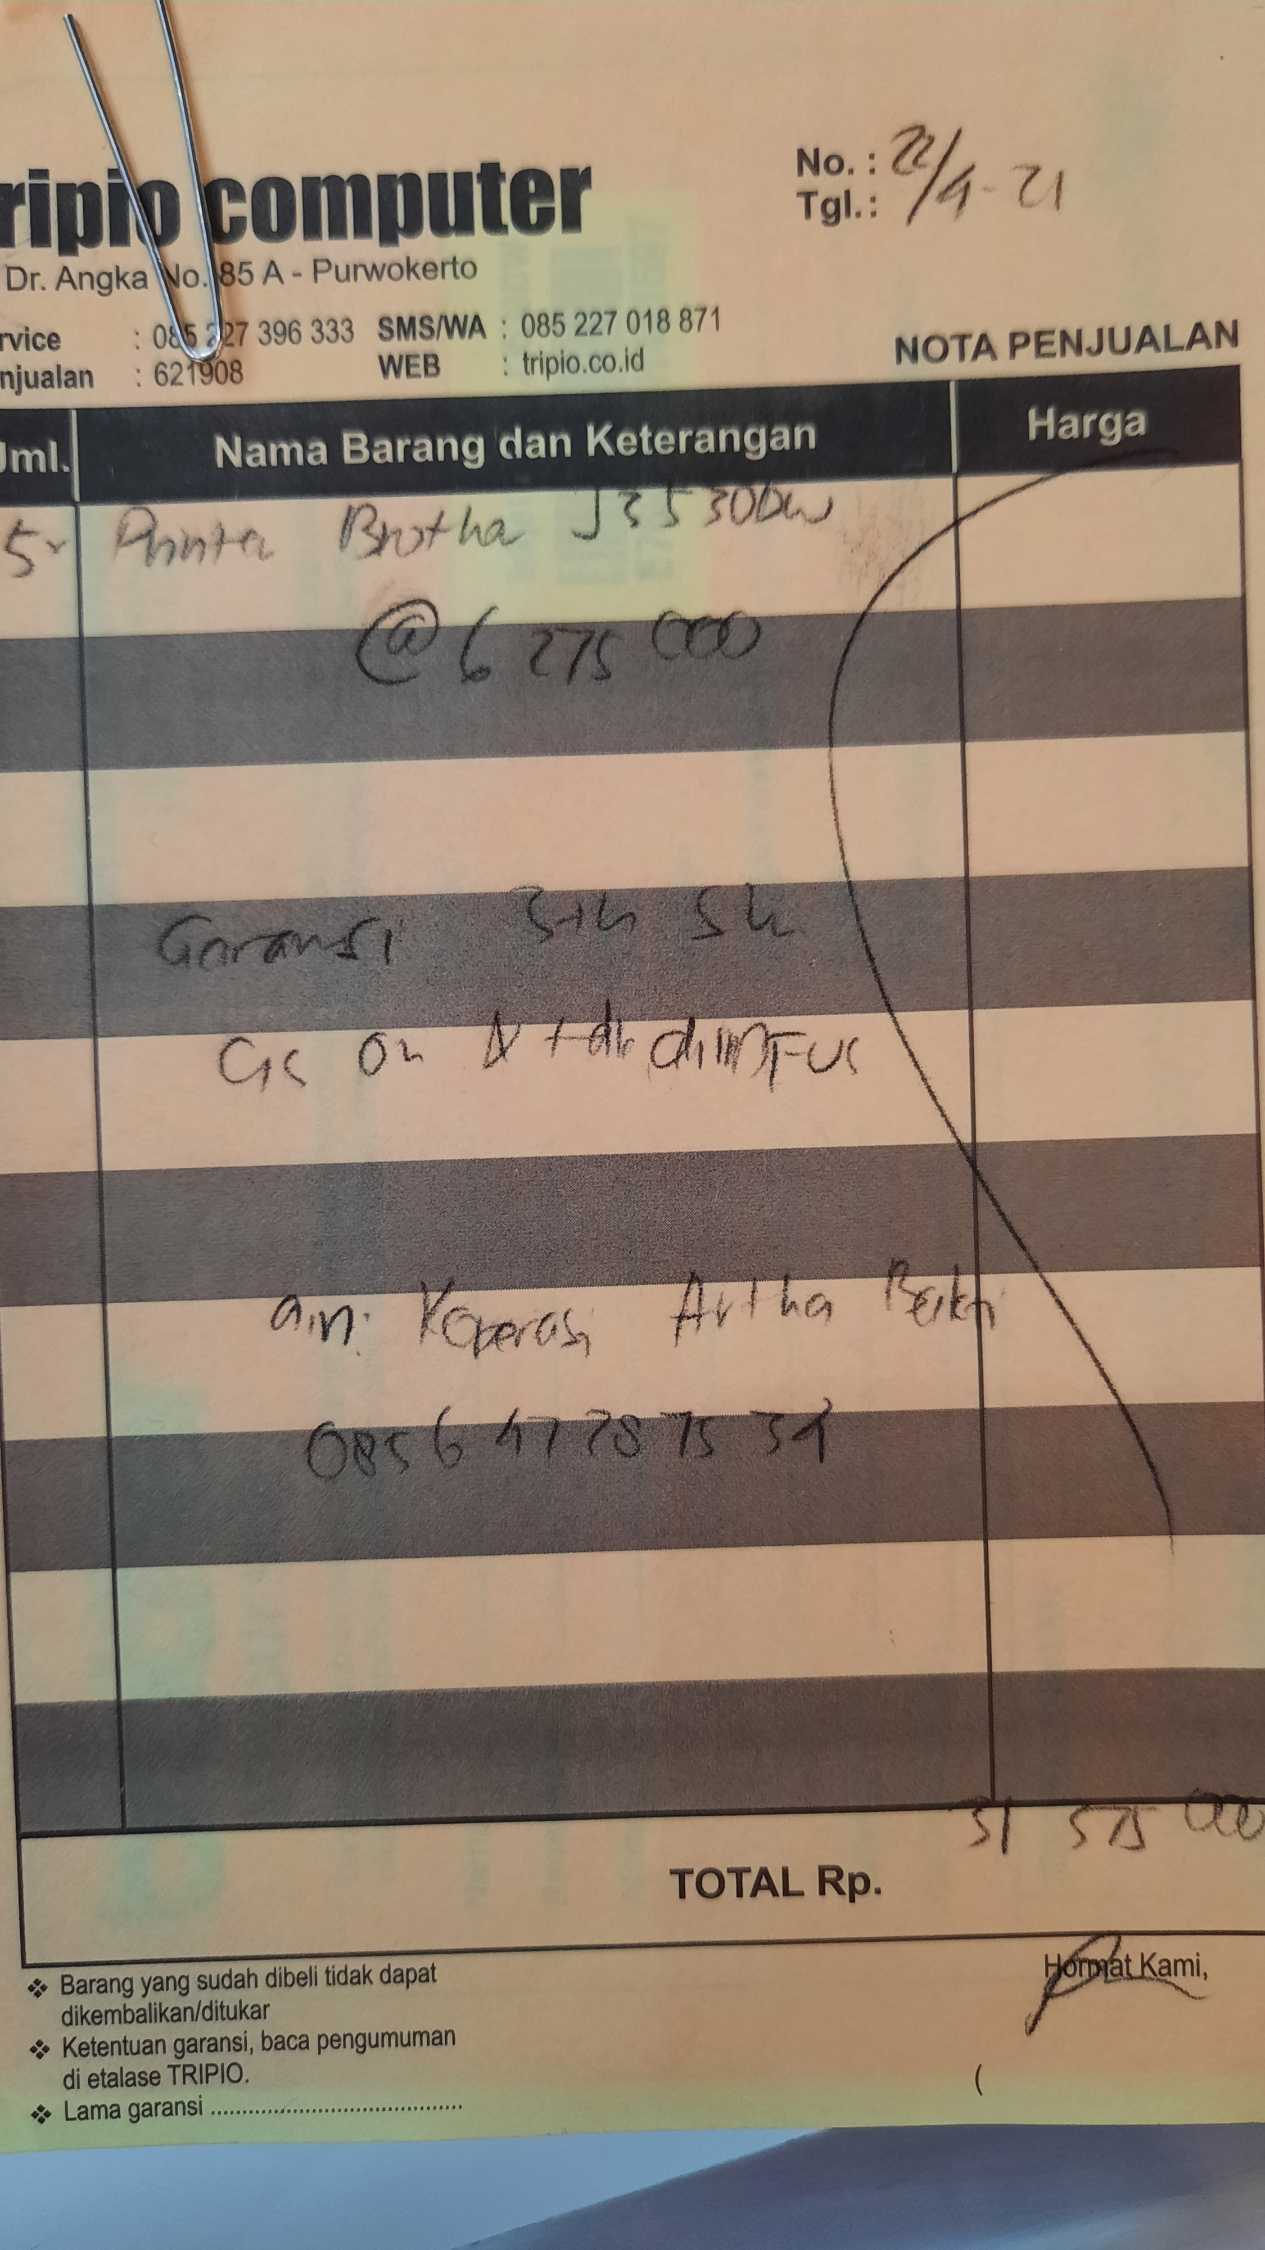 ripio computer
No. : 22/4-21
Tgl. :
Dr. Angka No. 85 A - Purwokerto
rvice : 085 227 396 333 SMS/WA : 085 227 018 871
njualan : 621908 WEB : tripio.co.id
NOTA PENJUALAN
Jml. Nama Barang dan Keterangan Harga
5 Printer Brother J3530DW
@ 6 275 000
Garansi 3th
an. Koperasi Artha Bakti
31 575 000
TOTAL Rp.
❖ Barang yang sudah dibeli tidak dapat
dikembalikan/ditukar
❖ Ketentuan garansi, baca pengumuman
di etalase TRIPIO.
❖ Lama garansi ..........................................
Hormat Kami,
(